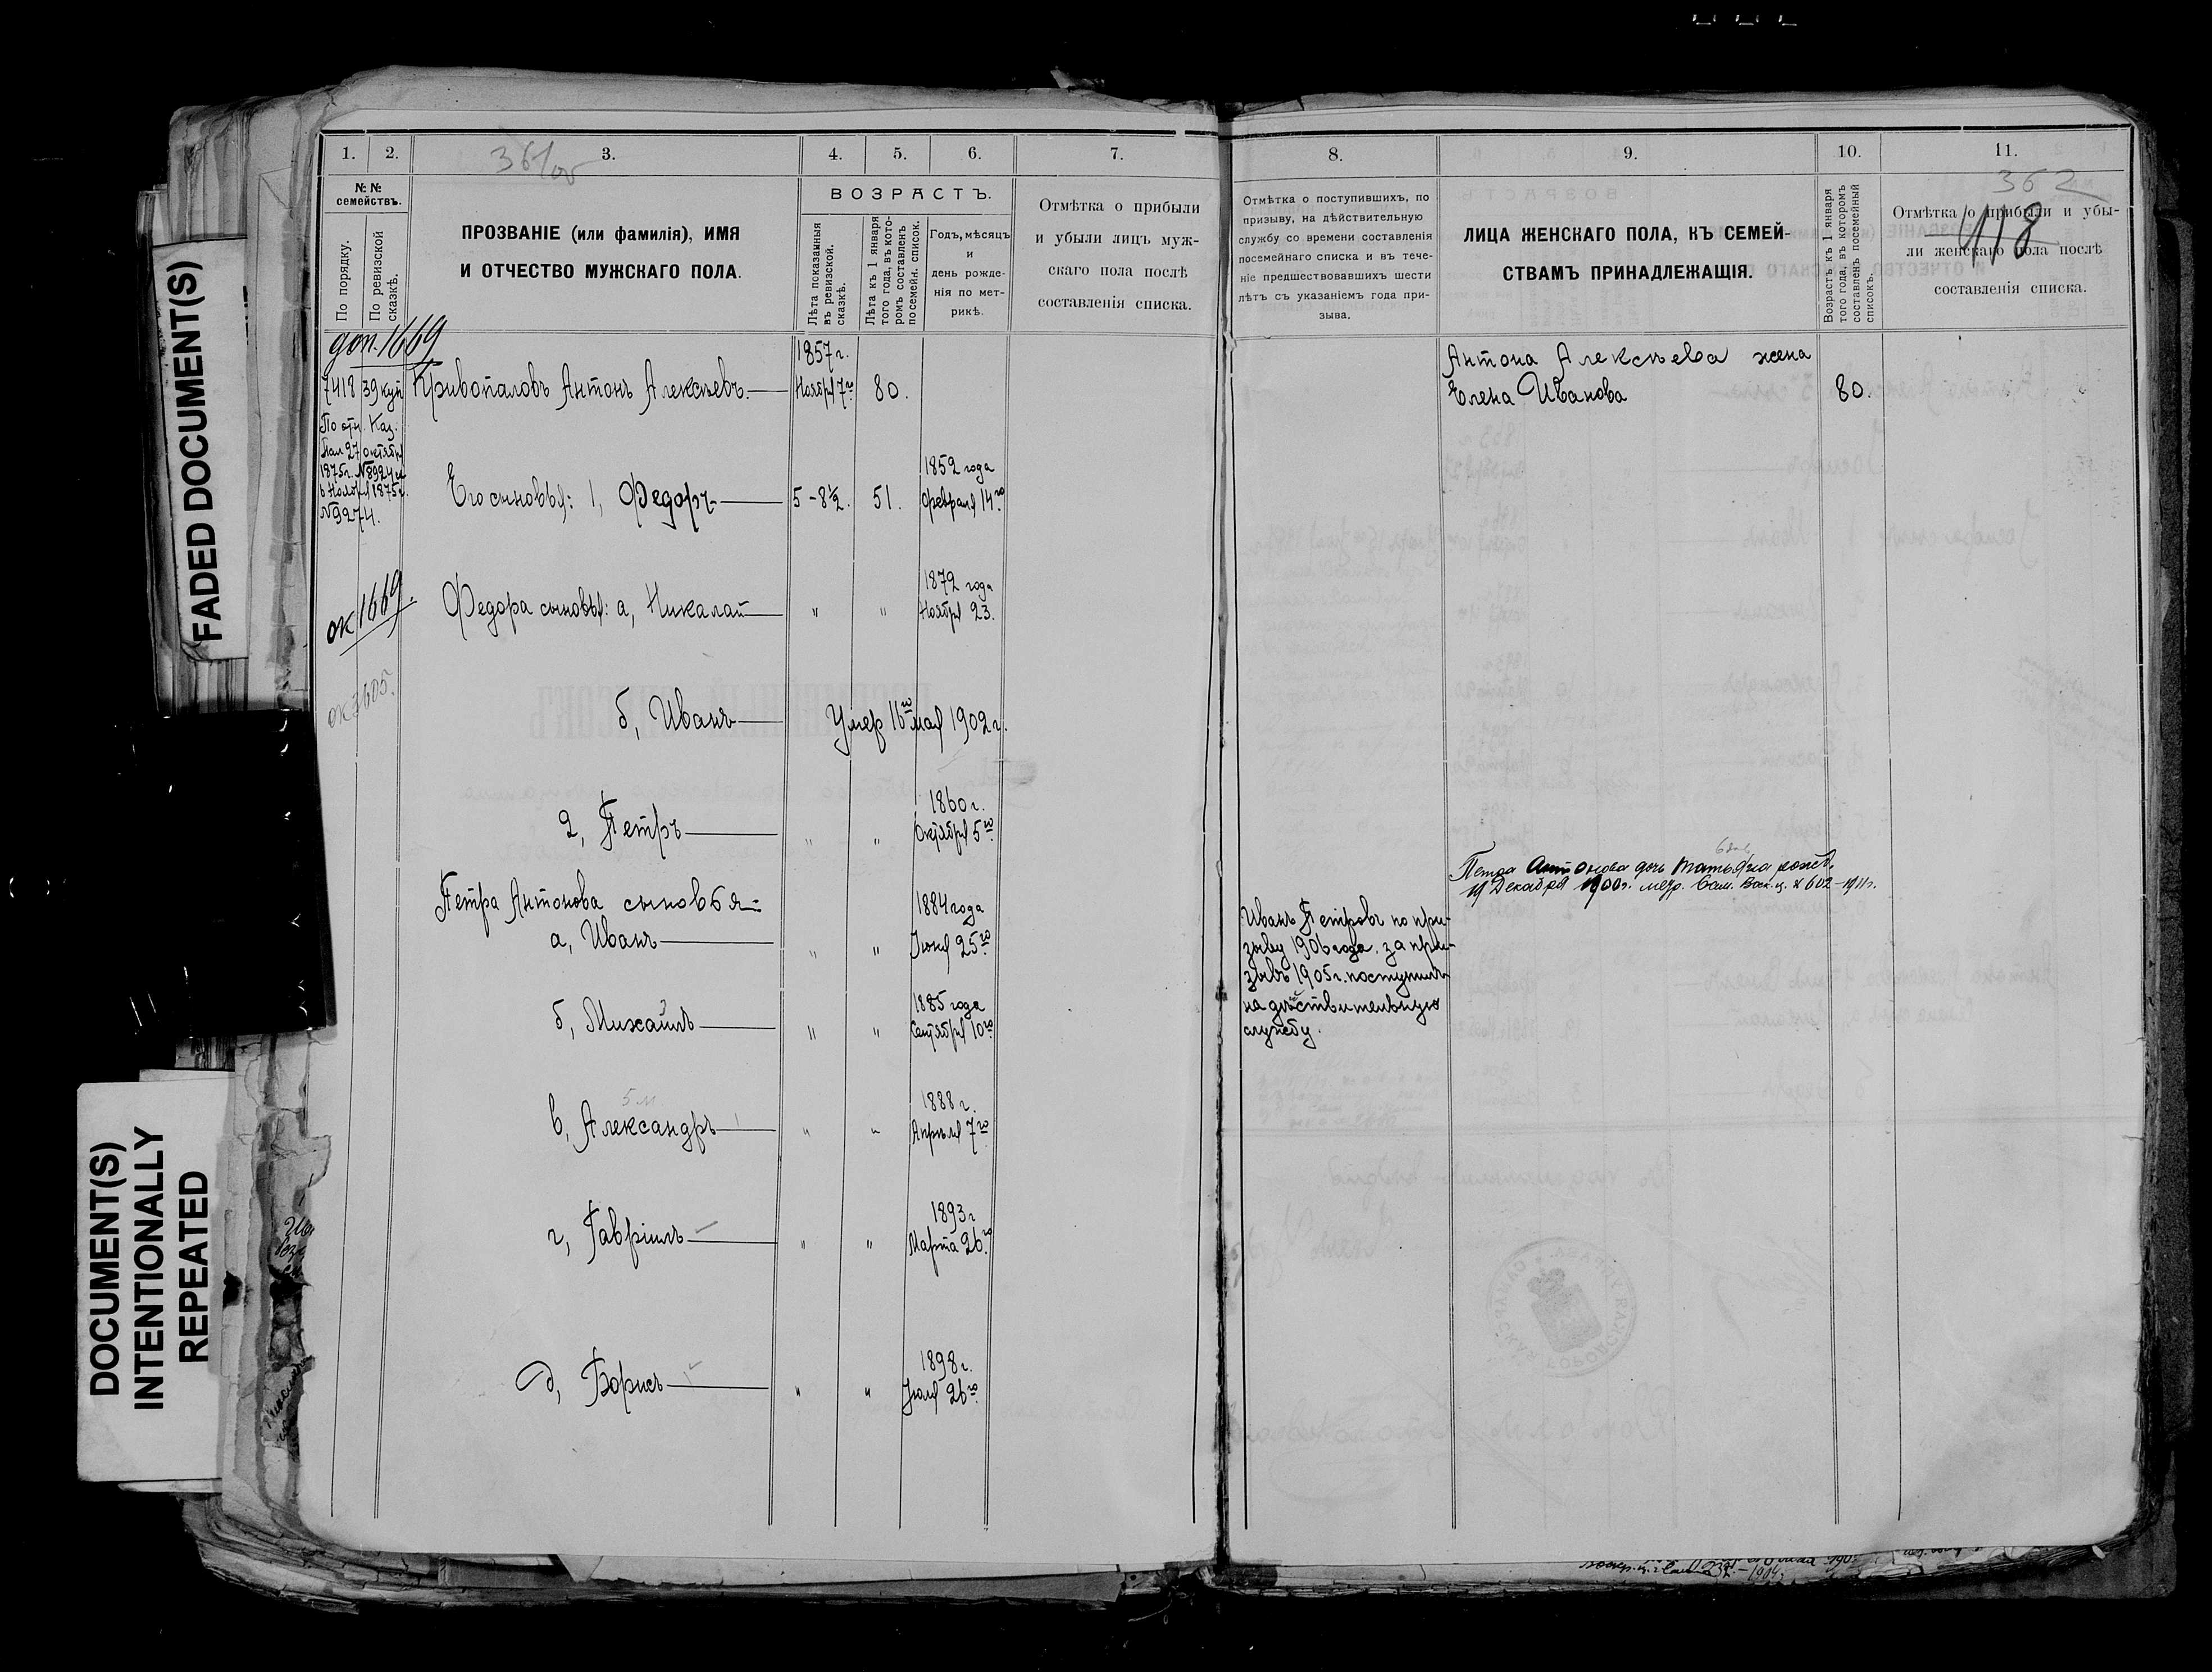 FADED DOCUMENT(S)
DOCUMENT(S)
INTENTIONALLY
REPEATED
1. 2. 3. 4. 5. 6. 7.
№ №
семействъ.
По порядку.
По ревизской сказкѣ.
ПРОЗВАНІЕ (или фамилія), ИМЯ
И ОТЧЕСТВО МУЖСКАГО ПОЛА.
ВОЗРАСТЪ.
Лѣта показанныя
въ ревизской
сказкѣ.
Лѣта къ 1 января
того года, въ кото-
ромъ составленъ
посемейн. списокъ.
Годъ, мѣсяцъ
и
день рожде-
нія по мет-
рикѣ.
Отмѣтка о прибыли
и убыли лицъ муж-
скаго пола послѣ
составленія списка.
доп. 1669
7418 39 куп Кривопаловъ Антонъ Алексѣевъ. 1857 г. Ноября 7го 80.
По отн. Каз.
Пал 27 октября
1875г. №8924 и
6 Ноября 1875г.
№9274.
Его сыновья: 1, Федоръ 5-8½. 51. 1852 года Февраля 14го
ок 1669.
Федора сыновья: а, Николай " " 1872 года Ноября 23.
ок 3605.
б, Иванъ Умер 16го мая 1902 г.
2, Петръ " " 1860 г. Октября 5го
Петра Антонова сыновья:
а, Иванъ " " 1884 года Іюня 25го
б, Михаилъ " " 1885 года Сентября 10го
в, Александръ " " 1888 г. Апрѣля 7го
г, Гавріилъ " " 1893 г Марта 26го
д, Борисъ " " 1898 г. Іюля 26го
8. 9. 10. 11.
362
118
Отмѣтка о поступившихъ, по
призыву, на дѣйствительную
службу со времени составленія
посемейнаго списка и въ тече-
ніе предшествовавшихъ шести
лѣтъ съ указаніемъ года при-
зыва.
ЛИЦА ЖЕНСКАГО ПОЛА, КЪ СЕМЕЙ-
СТВАМЪ ПРИНАДЛЕЖАЩІЯ.
Возрастъ къ 1 января
того года, въ которомъ
составленъ посемейный
списокъ.
Отмѣтка о прибыли и убы-
ли женскаго пола послѣ
составленія списка.
Антона Алексѣева жена
Елена Иванова 80.
Петра Антонова дочь Татьяна рожд.
19 Декабря 1900г. метр. Сам. Воск. ц. № 602-1911г.
Иванъ Петровъ по при-
зыву 1906 года. за при-
зывъ 1905 г. поступилъ
на дѣйствительную
службу.